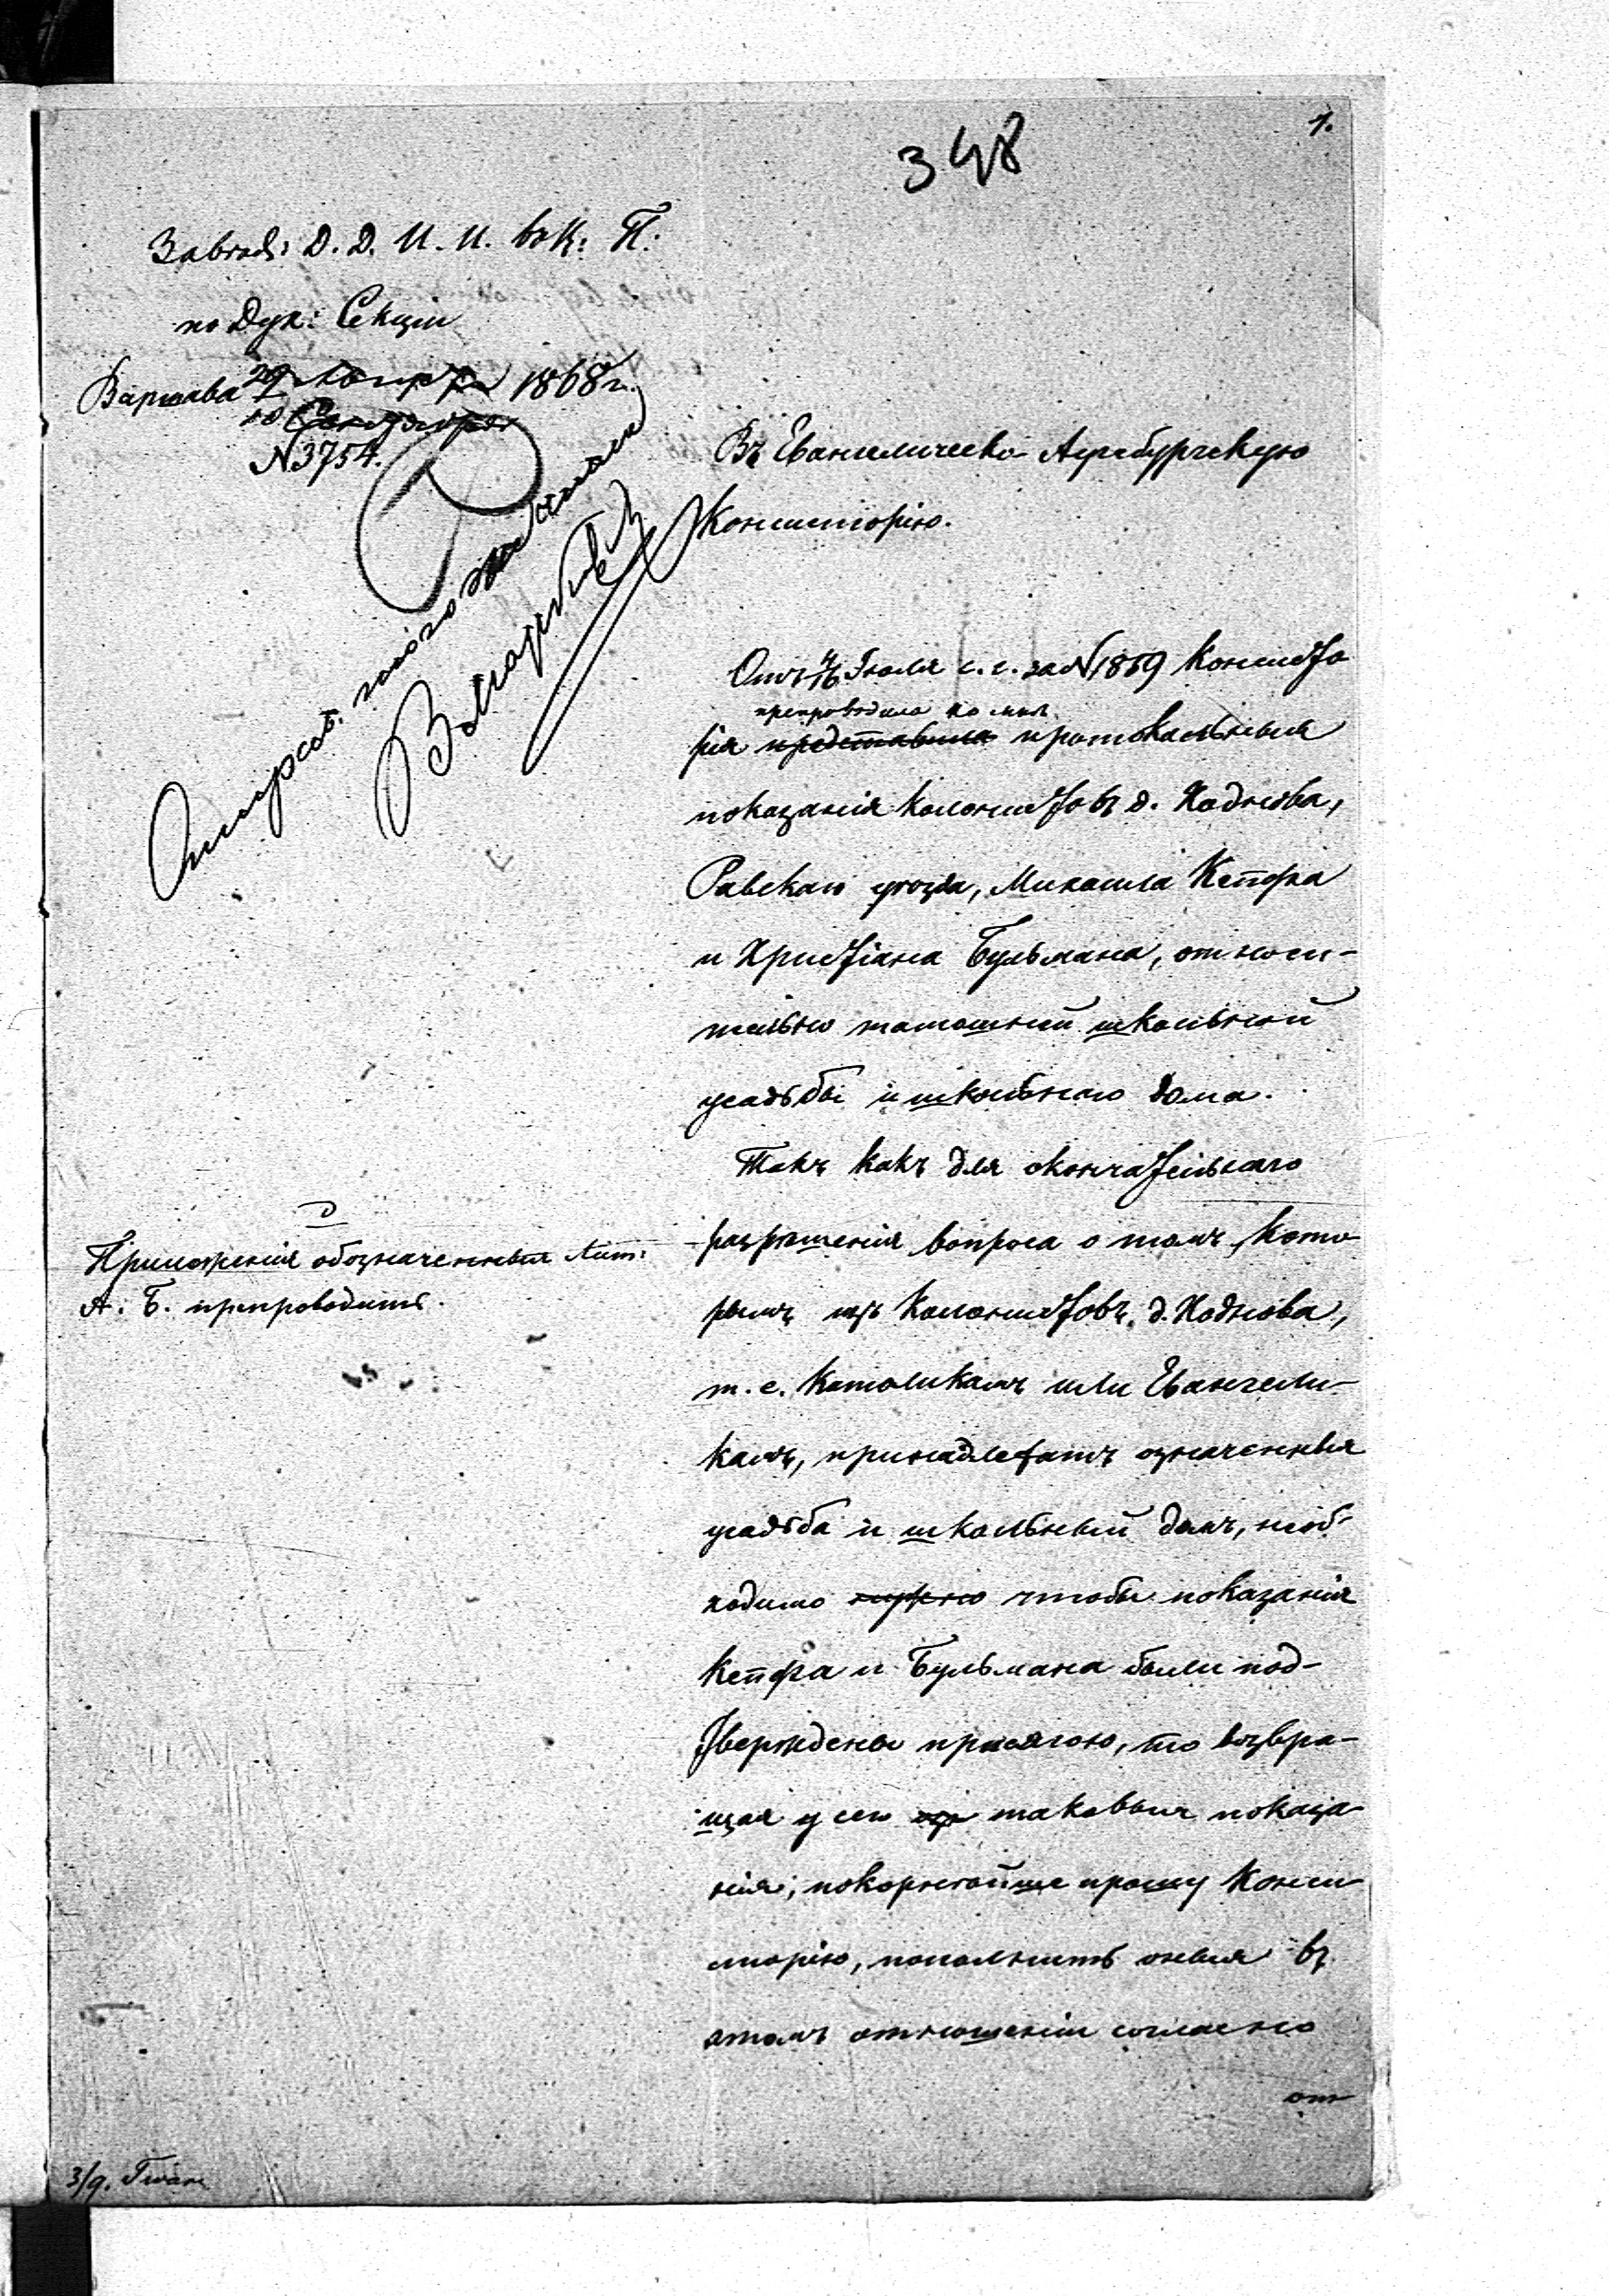 1.
348
Завѣд: Д. Д. И. И. въ Ц: П:
по Дух: Секціи
Варшава 29 Августа 1868 г.
10 Сентября
№ 3754.
Въ Евангелическо-Аугсбургскую
Консисторію.
Отъ 4/16 Іюля с. г. за № 1859 Консисто
препроводила ко мнѣ
рія представила протокольныя
показанія колонистовъ д. Хаднова,
Равскаго уѣзда, Михаила Кепфа
и Христіана Бульмана, относи-
тельно тамошней школьной
усадьбы и школьнаго дома.
Такъ какъ для окончательнаго
разрѣшенія вопроса о томъ, кото
рымъ изъ колонистовъ д. Хаднова,
т. е. Католикамъ или Евангели-
камъ, принадлежатъ означенныя
усадьба и школьный домъ, необ-
ходимо нужно чтобы показанія
Кепфа и Бульмана были под-
тверждены присягою, то возвра-
щая у сего таковыя показа
нія, покорнѣйше прошу Конси
сторію, пополнить оныя въ
этомъ отношеніи согласно
от
Приложенія обозначенныя Лит:
А. Б. препроводить.
3/9.